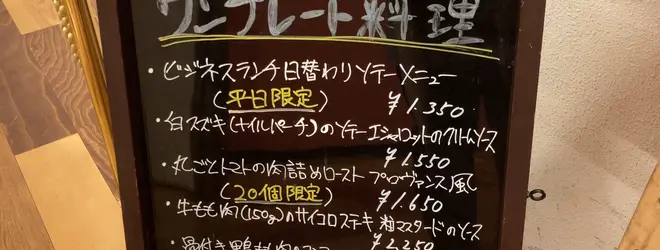 ワンプレート料理
・ビジネスランチ日替わりソテーメニュー
(平日限定) ¥1,350
・白スズキ(ナイルパーチ)のソテーエシャロットのクリームソース
¥1,550
・丸ごとトマトの肉詰めロースト プロヴァンス風
(20個限定) ¥1,650
・牛もも肉(150g)のサイコロステキ 粒マスタードのソース
・骨付き鴨もも肉のコンフィ ¥2,250